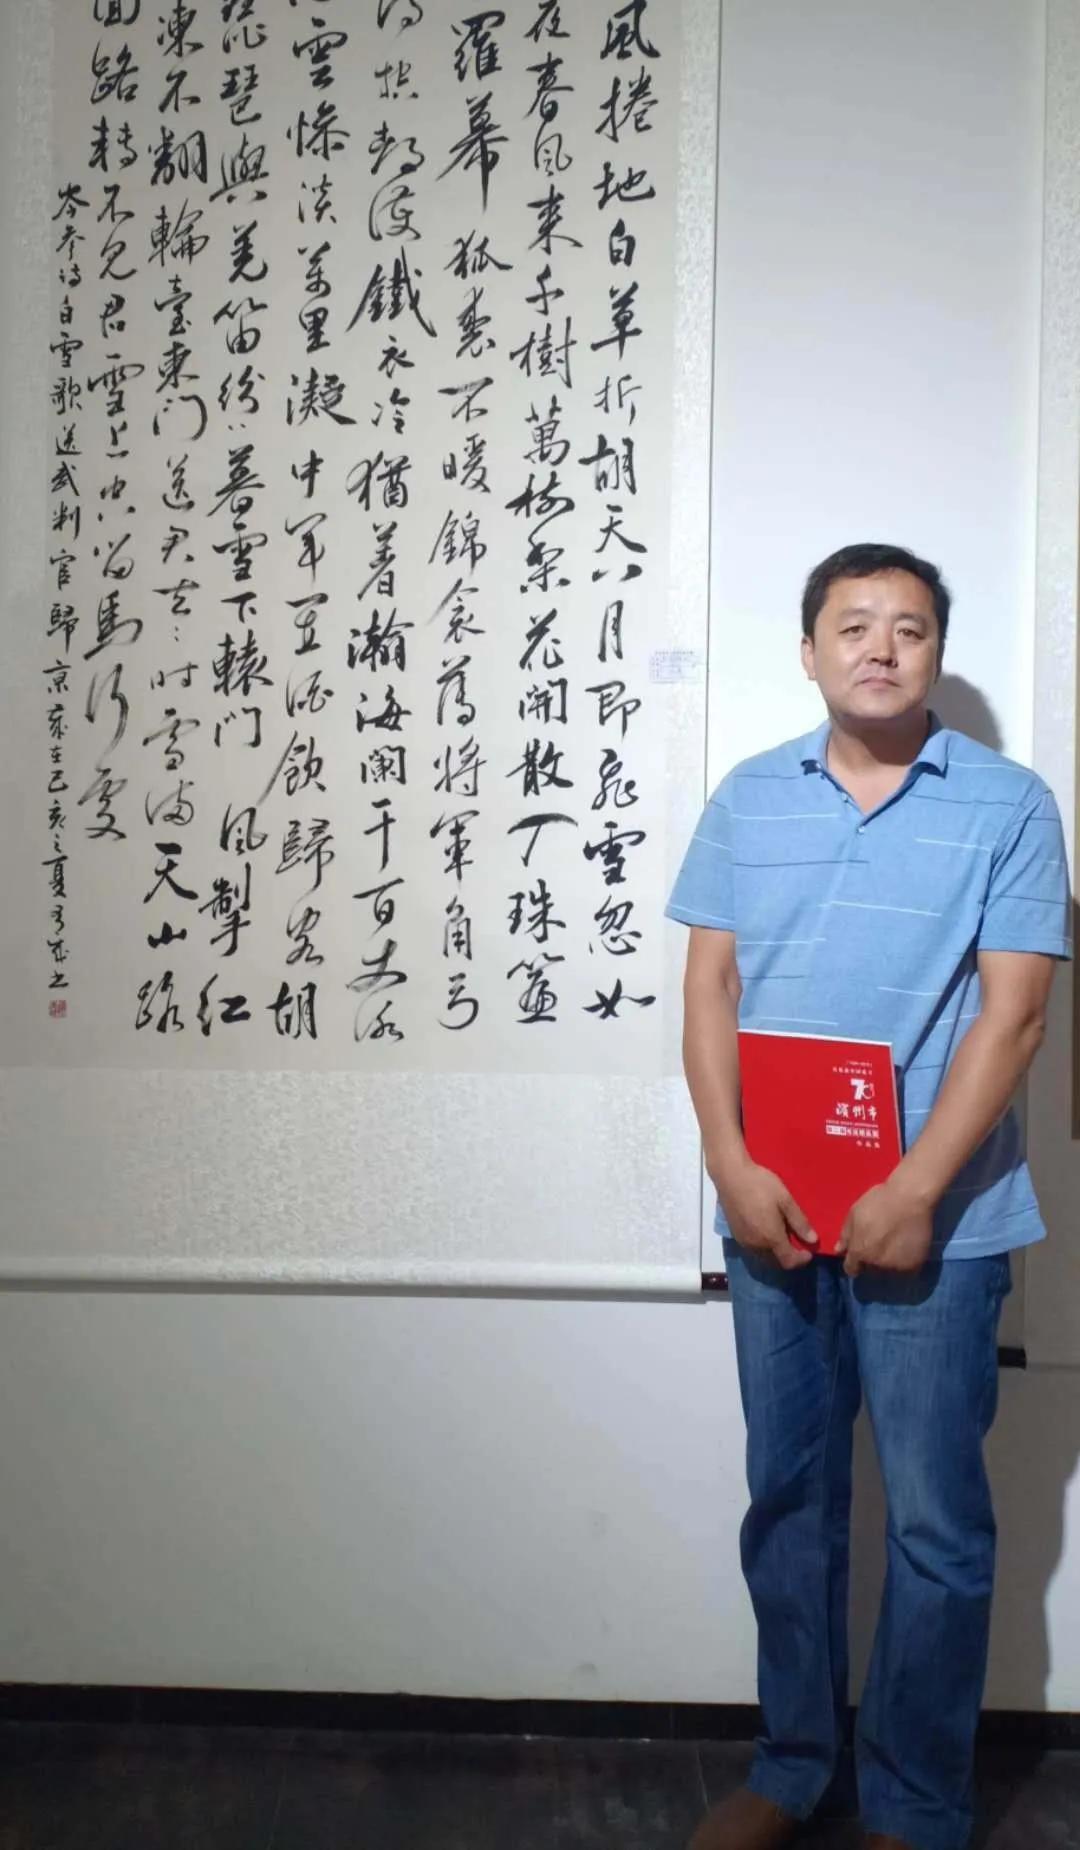 風捲地白草折胡天八月即飛雪忽如
夜春風来千樹萬樹梨花開散入珠簾
羅幕狐裘不暖錦衾薄將軍角弓
得控都護鐵衣冷猶著瀚海闌干百丈冰
雲慘淡萬里凝中軍置酒飲歸客胡
琵琶與羌笛紛〻暮雪下轅門風掣紅
凍不翻輪臺東門送君去〻時雪滿天山路
回路轉不見君雪上空留馬行處
岑參詩白雪歌送武判官歸京歲在己亥之夏
70
濱州市
作品集